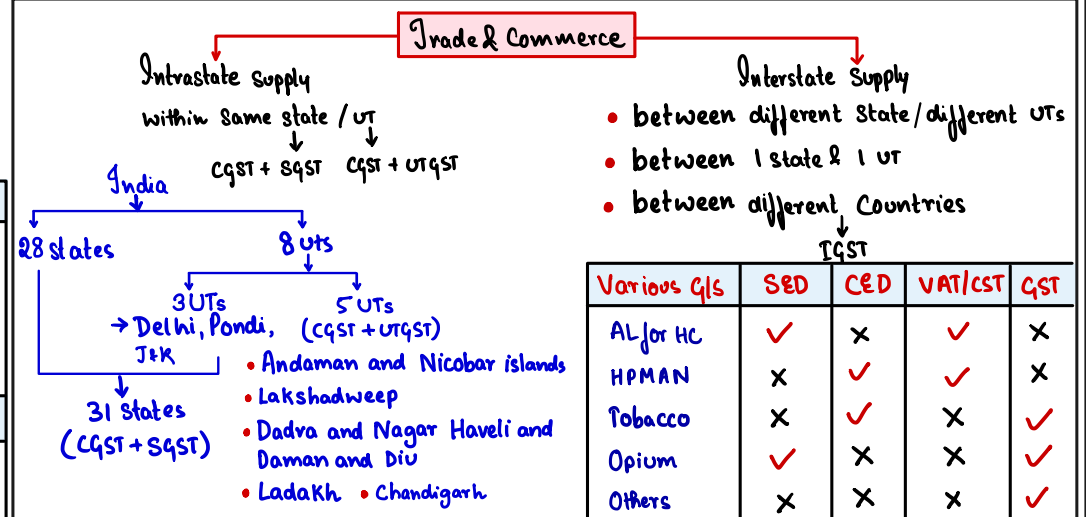 Trade & Commerce
Intrastate Supply
within Same state / UT
CGST + SGST CGST + UTGST
India
28 states
8 uts
3 UTs
→ Delhi, Pondi,
J&K
5 UTs
(CGST + UTGST)
• Andaman and Nicobar islands
• Lakshadweep
• Dadra and Nagar Haveli and
Daman and Diu
• Ladakh • Chandigarh
31 States
(CGST + SGST)
Interstate Supply
• between different State/different UTs
• between 1 state & 1 UT
• between different Countries
IGST
Various G/s SED CED VAT/CST GST
AL for HC ✓ × ✓ ×
HPMAN × ✓ ✓ ×
Tobacco × ✓ × ✓
Opium ✓ × × ✓
Others × × × ✓